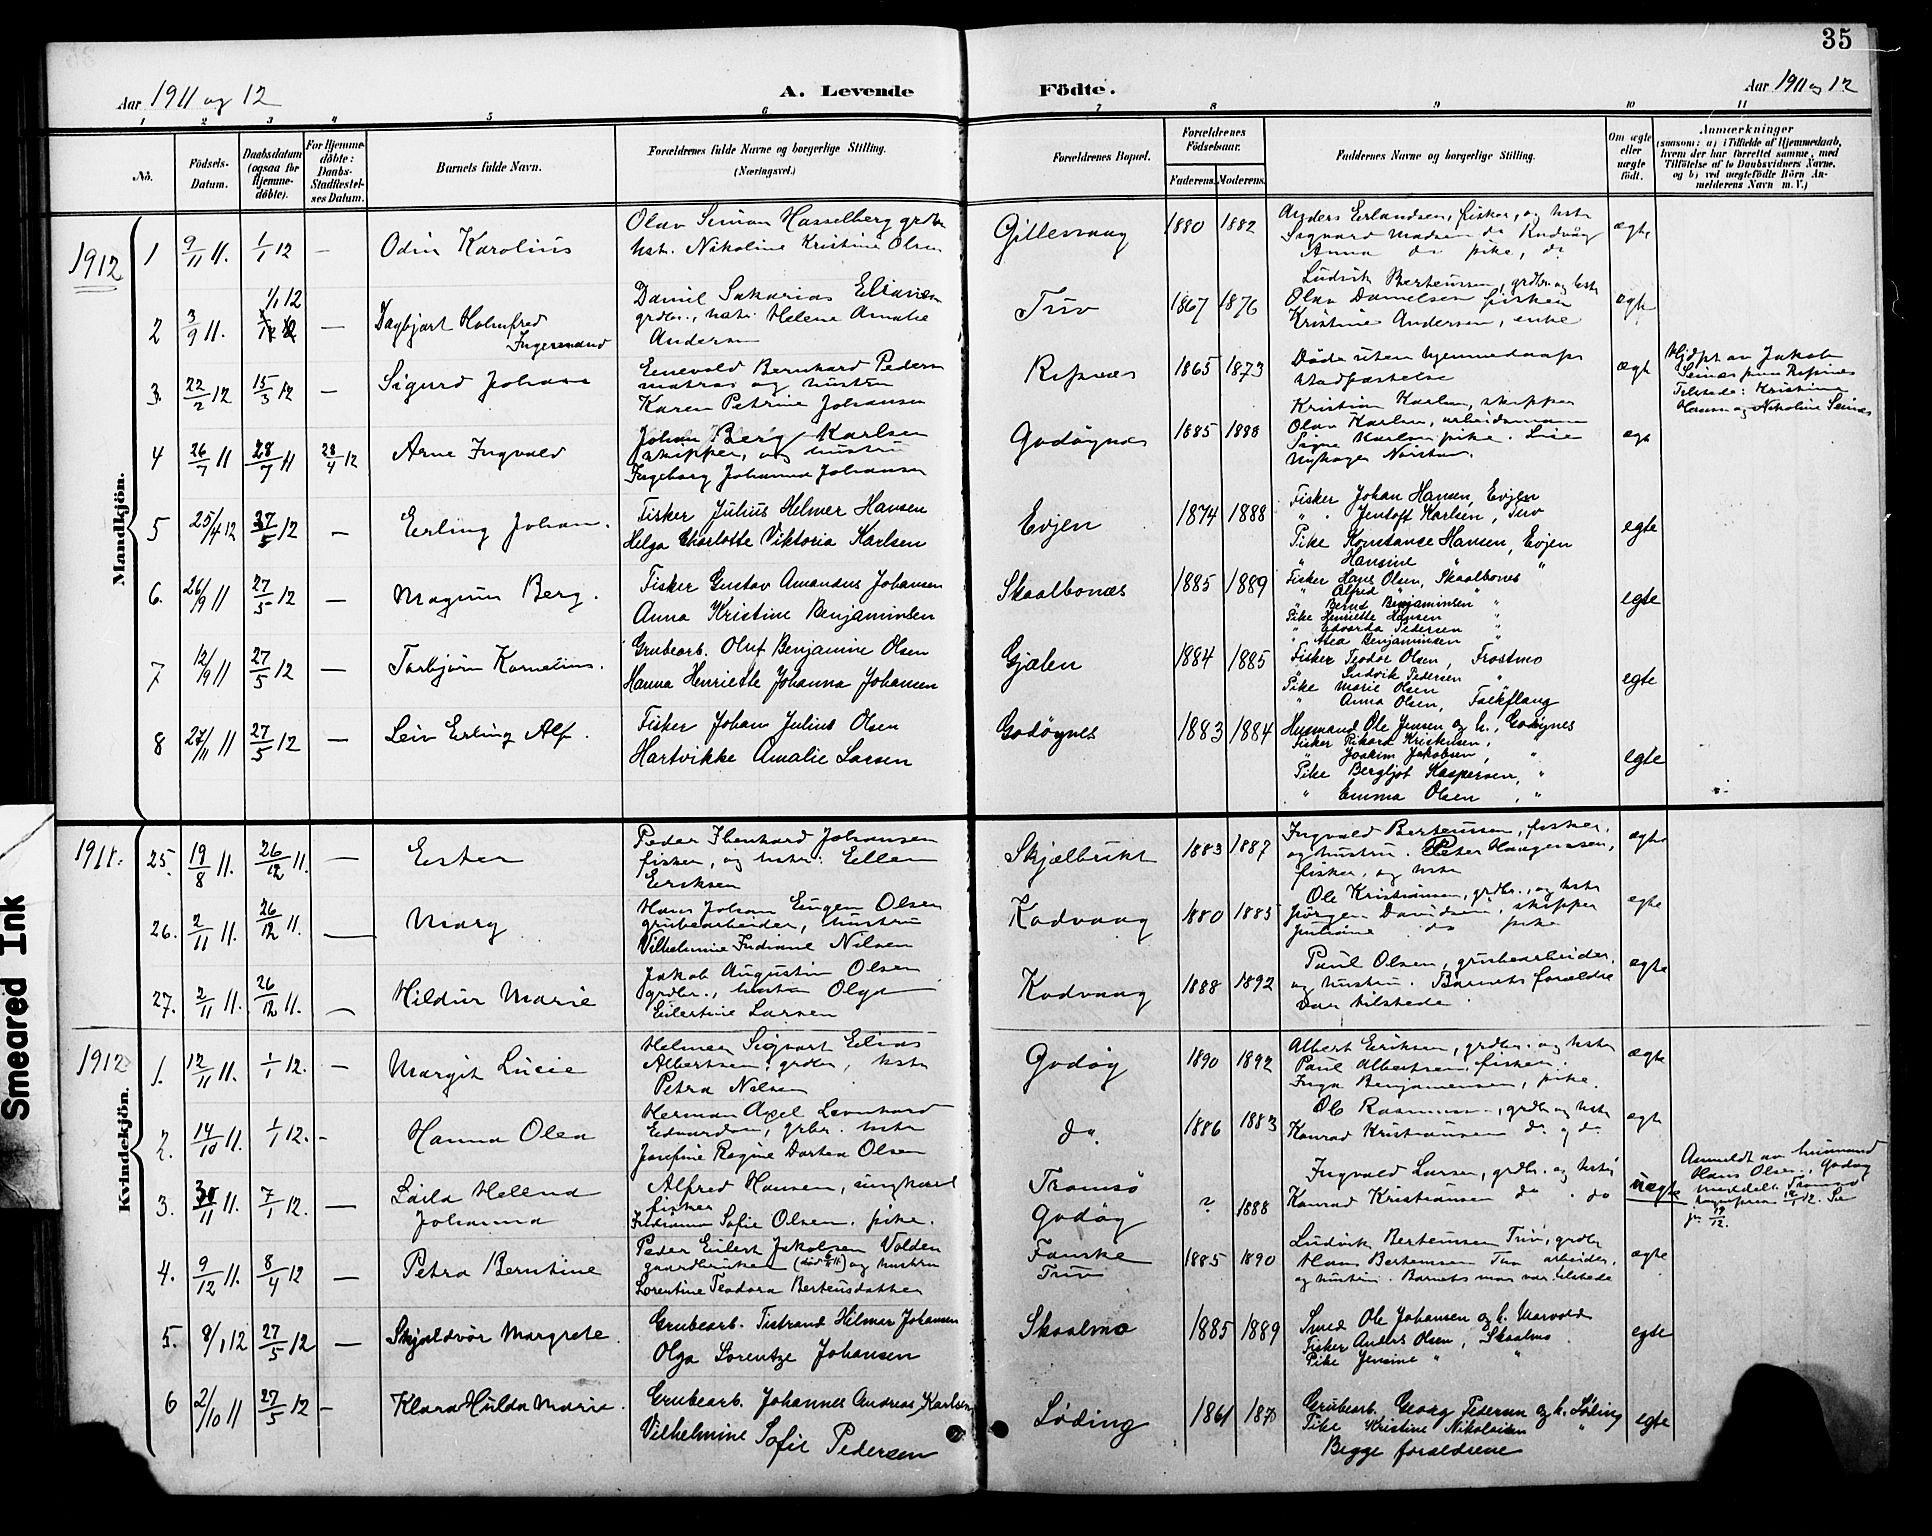 35
Aar 1911 og 12
A. Levende
Födte.
Aar 1911 og 12
1 2 3 4 5 6 7 8 9 10 11
No.
Födsels-
Datum.
Daabsdatum
(ogsaa for
Hjemme-
döbte).
For Hjemme-
döbte:
Daabs-
Stadfæstel-
ses Datum.
Barnets fulde Navn.
Forældrenes fulde Navne og borgerlige Stilling.
(Næringsvei.)
Forældrenes Bopæl.
Forældrenes
Födselsaar.
Faderens.
Moderens.
Faddernes Navne og borgerlige Stilling.
Om ægte
eller
uægte
födt.
Anmærkninger
(saasom: a) i Tilfælde af Hjemmedaab,
hvem der har forrettet samme, med
Tilföielse af to Daabsvidners Navne,
og b) ved uægtefödte Börn An-
melderens Navn m. V.)
Mandkjön.
1912
1 9/11 11. 1/1 12 – Odin Karolius
Olav Simon Hasselberg grdbr
hstr. Nikoline Kristine Olsen
Gillesvaag 1880 1882
Anders Erlandsen, fisker, og hstr
Sigvard Madsen do Kodvåg
Anna do pike, do
ægte
2 3/9 11. 1/1 12 – Dagbjart Holmfred
Ingeremand
Daniel Sakarias
grdbr., hstr. Helene Amalie
Andersen
Tuv 1867 1876
Ludvik Berteussen, grdbr. og hstr
Olav Danielsen fisker
Kristine Andersen, enke
ægte
3. 22/2 12 15/3 12 – Sigurd Johan
Enevold Bernhard Peders
matros og hustru
Karen Petrine Johansen
Ripnes 1865 1873
Døde uten hjemmedaaps
stadfæstelse
ægte
Hjdpt av Jakob
Ripnes
Tilstede: Kristine
Hansen og Nikoline
4 26/7 11 28/7 11 28/4 12 Arne Ingvald
Johan Berg Karlsen
skipper, og hustru
Ingeborg Johanna Johansen
Godøynes 1885 1888
Kristian Karlsen, skipper
Olav Karlsen, arbeidsmann
Signe Karlsen pike.
ægte
5 25/4 12 27/5 12 – Erling Johan.
Fisker Julius Helmer Hansen
Helga Charlotte Viktoria Karlsen
Evjen 1874 1888
Fisker Johan Hansen, Evjen
" Jentoft Karlsen, Tuv
Pike Konstance Hansen, Evjen
" Hansine " "
egte
6. 26/9 11 27/5 12 – Magnus Berg.
Fisker Gustav Amandus Johansen
Anna Kristine Benjaminsen
Skaalbones 1885 1889
Fisker Hans Olsen, Skaalbones
" Alfred " "
" Bernt Benjaminsen "
Pike Henriette Hansen "
" Edvarda Pedersen "
" Alea Benjaminsen "
egte
7 12/9 11 27/5 12 – Torbjørn Kornelius.
Grubearb. Oluf Benjamine Olsen
Hanna Henriette Johanna Johansen
Gjælen 1884 1885
Fisker Teodor Olsen, Frostmo
" Ludvik Pedersen "
Pike Marie Olsen
" Anna Olsen, Falkflaug
egte
8 27/11 11 27/5 12 – Leiv Erling Alf.
Fisker Johan Julius Olsen
Hartvikke Amalie Larsen
Godøynes 1883 1884
Husmand Ole Jensen og h., Godøynes
Fisker Rikard Kristensen, "
" Joakim Jakobsen, "
Pike Bergljot Kaspersen, "
" Emma Olsen, "
egte
Kvindekjön.
1911.
25. 19/8 11. 26/12 11. – Ester
Peder Ibenhard Johansen
fisker, og hstr: Ellen
Eriksen
Skjælbukt 1883 1887
Ingvald Berteussen, fisker,
og hustru. Peter Haagensen,
fisker, og hstr
ægte
26. 2/11 11. 26/12 11. – Mary
Hans Johan Eugen Olsen
grubearbeider, hustru
Vilhelmine Indiane Nilsen
Kodvaag 1880 1885
Ole Kristiansen, grdbr., og hstr
Jørgen Davidsen, skipper
Juliane do pike
egte
27. 2/11 11. 26/12 11. – Hildur Marie
Jakob Augustin Olsen
grdbr., hustru Olga
Eilertine Larsen
Kodvaag 1888 1892
Paul Olsen, grubearbeider,
og hustru. Barnets forældre
var tilstede.
ægte
1912
1. 12/11 11. 1/1 12. – Margit Lucie
Helmer Sigvart Elias
Albertsen, grdbr, hstr
Petra Nilsen
Godøy 1890 1892
Albert Eriksen, grdbr. og hstr
Paul Albertsen, fisker.
Inga Benjaminsen, pike.
ægte
2. 14/10 11. 1/1 12. – Hanna Olea
Herman Axel Leonhard
Edvardsen, grbr. hstr
Josefine Regine Dortea Olsen
do. 1886 1883
Ole Rasmussen, grdbr og hstr
Konrad Kristiansen do og do
egte
3. 30/11 11. 7/1 12. – Laila Helena
Johanna
Alfred Hansen, ungkarl
fisker
Indianna Sofie Olsen. pike.
Tromsø
Godøy ? 1888
Ingvald Larsen, grdbr. og hstr
Konrad Kristiansen do. do
uægte
Anmeldt av husmand
Hans Olsen, Godøy
meddelt Tromsø
4. 9/12 11. 8/4 12 – Petra Berntine
Peder Eilert Jakobsen Valden
gaardbruker (død 6/8 11) og hustru
Lorentine Teodora Berteusdatter
Fauske
Tuv 1885 1890
Ludvik Berteussen Tuv, grdbr
Hans Berteussen Tuv arbeider,
og hustru. Barnets mor var tilstede
ægte
5. 8/1 12 27/5 12 – Skjøldvør Margrete.
Grubearb. Tistrand Hilmar Johansen
Olga Lorentze Johansen
Skaalmo 1885 1889
Smed Ole Johansen og h.
Fisker Anders Olsen, Skaalmo
Pike Jensine " "
egte
6 2/10 11 27/5 12 – Klara Hulda Marie.
Grubearb. Johannes Andreas Karlsen
Vilhelmine Sofie Pedersen
Løding 1861 1870
Grubearb. Georg Pedersen og h. Løding
Pike Kristine Nikolaisen "
Begge forældrene
egte
Smeared Ink